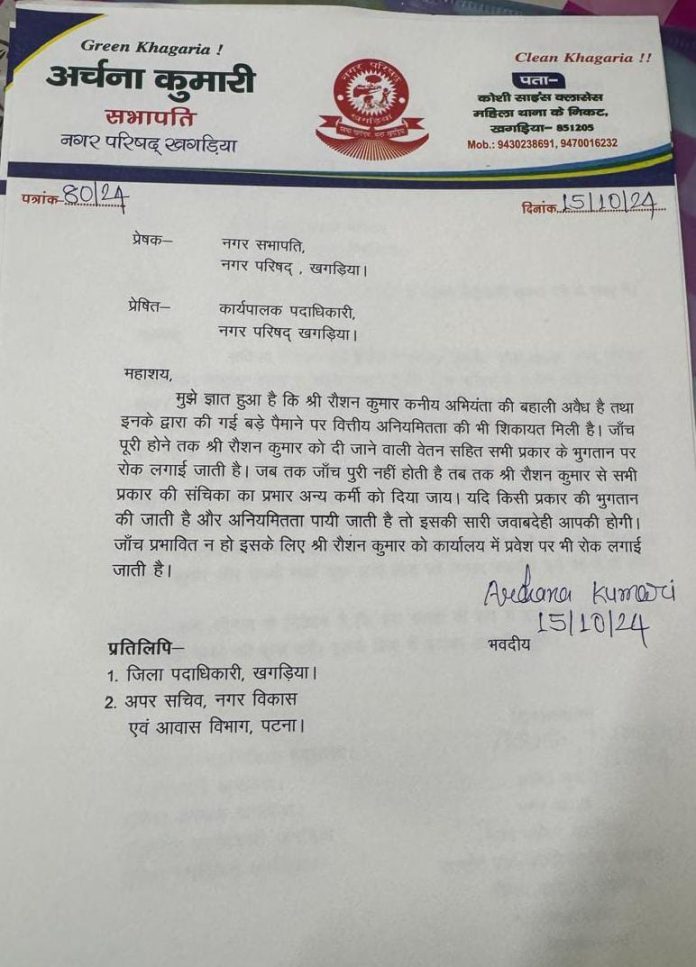 Green Khagaria !
Clean Khagaria !!
अर्चना कुमारी
सभापति
नगर परिषद् खगड़िया
नगर परिषद
खगड़िया
पता–
कोशी साइंस क्लासेस
महिला थाना के निकट,
खगड़िया– 851205
Mob.: 9430238691, 9470016232
पत्रांक 80/24
दिनांक 15/10/24
प्रेषक– नगर सभापति,
नगर परिषद् , खगड़िया।
प्रेषित– कार्यपालक पदाधिकारी,
नगर परिषद खगड़िया।
महाशय,
मुझे ज्ञात हुआ है कि श्री रौशन कुमार कनीय अभियंता की बहाली अवैध है तथा
इनके द्वारा की गई बड़े पैमाने पर वित्तीय अनियमितता की भी शिकायत मिली है। जाँच
पूरी होने तक श्री रौशन कुमार को दी जाने वाली वेतन सहित सभी प्रकार के भुगतान पर
रोक लगाई जाती है। जब तक जाँच पुरी नहीं होती है तब तक श्री रौशन कुमार से सभी
प्रकार की संचिका का प्रभार अन्य कर्मी को दिया जाय। यदि किसी प्रकार की भुगतान
की जाती है और अनियमितता पायी जाती है तो इसकी सारी जवाबदेही आपकी होगी।
जाँच प्रभावित न हो इसके लिए श्री रौशन कुमार को कार्यालय में प्रवेश पर भी रोक लगाई
जाती है।
Archana Kumari
15/10/24
भवदीय
प्रतिलिपि–
1. जिला पदाधिकारी, खगड़िया।
2. अपर सचिव, नगर विकास
एवं आवास विभाग, पटना।